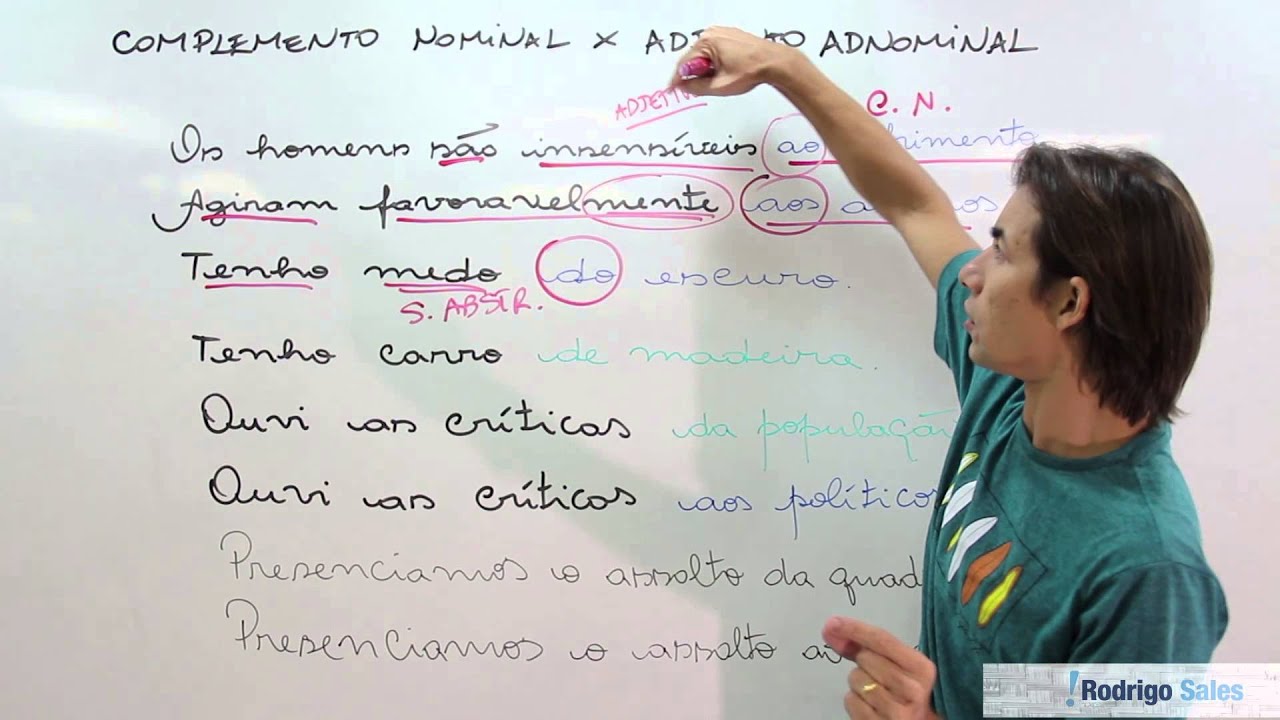 COMPLEMENTO NOMINAL X ADNOMINAL
ADJETIVO C.N.
Os homens são insensíveis ao
Agiram favoravelmente aos
Tenho medo do escuro.
S. ABSTR.
Tenho carro de madeira.
Ouvi as críticas da população
Ouvi as críticas aos políticos
Presenciamos o assalto da
Presenciamos o assalto
!Rodrigo Sales